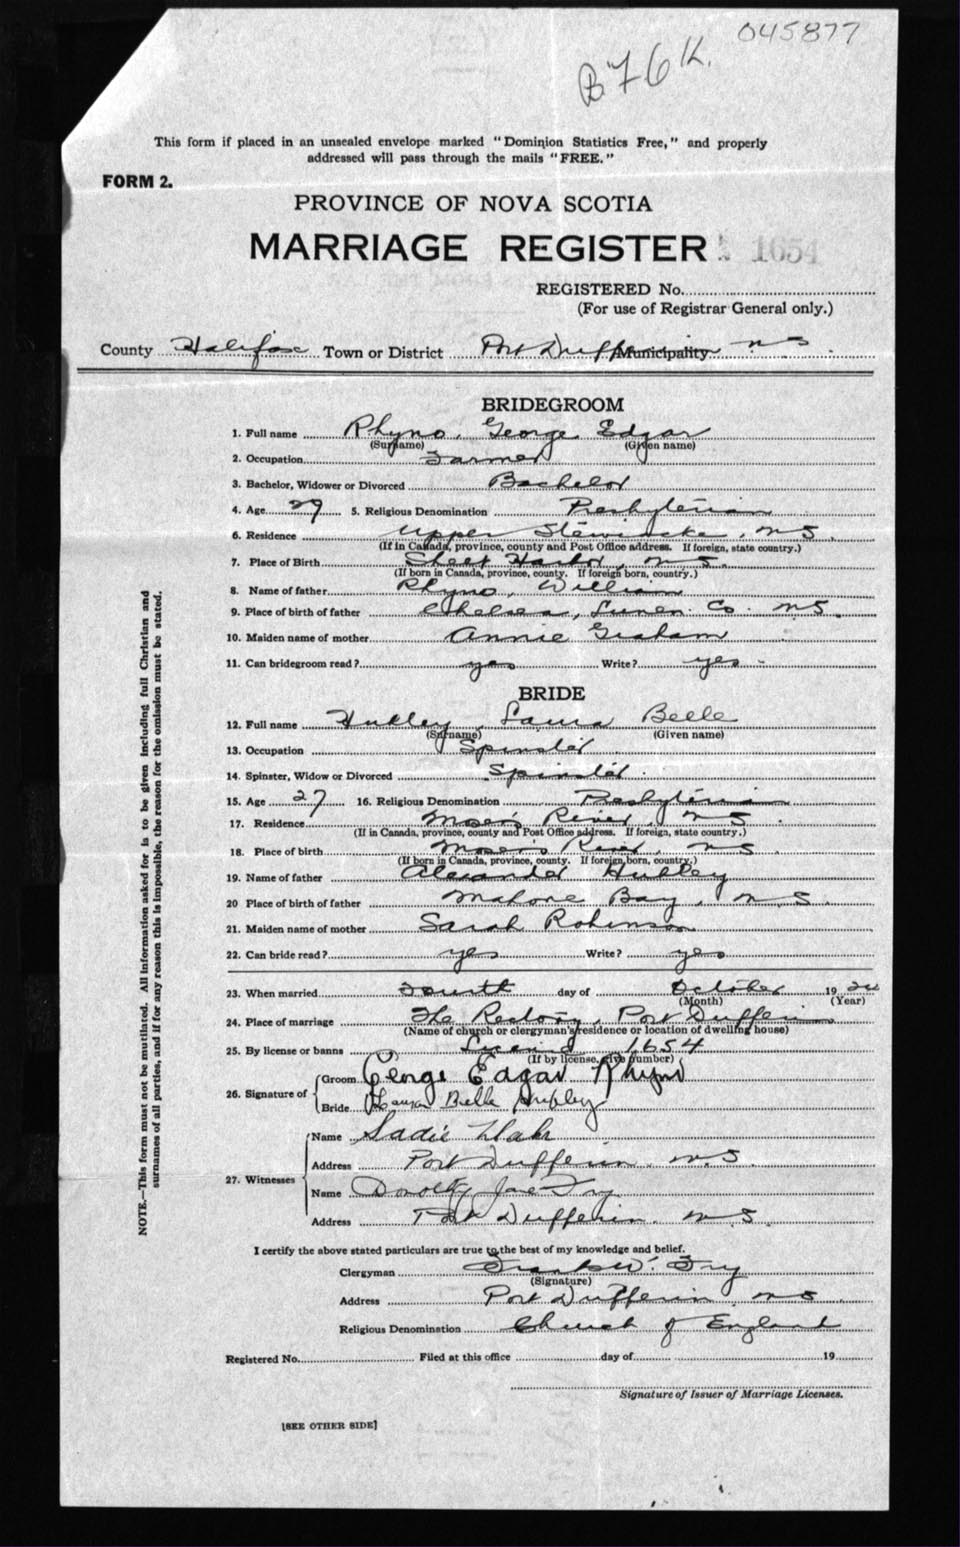 045877
B 76 K.
This form if placed in an unsealed envelope marked "Dominion Statistics Free," and properly
addressed will pass through the mails "FREE."
FORM 2.
PROVINCE OF NOVA SCOTIA
MARRIAGE REGISTER 1654
REGISTERED No.
(For use of Registrar General only.)
County Halifax Town or District Port Dufferin Municipality N S
BRIDEGROOM
1. Full name Rhyno, George Edgar
(Surname) (Given name)
2. Occupation Farmer
3. Bachelor, Widower or Divorced Bachelor
4. Age 29 5. Religious Denomination Presbyterian
6. Residence Upper Stewiacke, N S.
(If in Canada, province, county and Post Office address. If foreign, state country.)
7. Place of Birth Sheet Harbor, N S.
(If born in Canada, province, county. If foreign born, country.)
8. Name of father Rhyno, William
9. Place of birth of father Chelsea, Lunen. Co. N S.
10. Maiden name of mother Annie Graham
11. Can bridegroom read? yes Write? yes
BRIDE
12. Full name Hubley, Laura Belle
(Surname) (Given name)
13. Occupation Spinster
14. Spinster, Widow or Divorced Spinster
15. Age 27 16. Religious Denomination Presbyterian
17. Residence Moser's River, N S
(If in Canada, province, county and Post Office address. If foreign, state country.)
18. Place of birth Moser's River, N S
(If born in Canada, province, county. If foreign born, country.)
19. Name of father Alexander Hubley
20 Place of birth of father Mahone Bay, N S.
21. Maiden name of mother Sarah Robinson
22. Can bride read? yes Write? yes
23. When married Fourth day of October 19
(Month) (Year)
24. Place of marriage The Rectory, Port Dufferin
(Name of church or clergyman's residence or location of dwelling house)
25. By license or banns License 1654
(If by license, give number)
26. Signature of Groom George Edgar Rhyno
Bride Laura Belle Hubley
27. Witnesses Name Sadie
Address Port Dufferin, N.S.
Name Dorothy Jane Fry
Address Port Dufferin, N S.
I certify the above stated particulars are true to the best of my knowledge and belief.
Clergyman Frank W. Fry
(Signature)
Address Port Dufferin, N S.
Religious Denomination Church of England
Registered No. Filed at this office day of 19
Signature of Issuer of Marriage Licenses.
[SEE OTHER SIDE]
NOTE.—This form must not be mutilated. All information asked for is to be given including full Christian and
surnames of all parties, and if for any reason this is impossible, the reason for the omission must be stated.